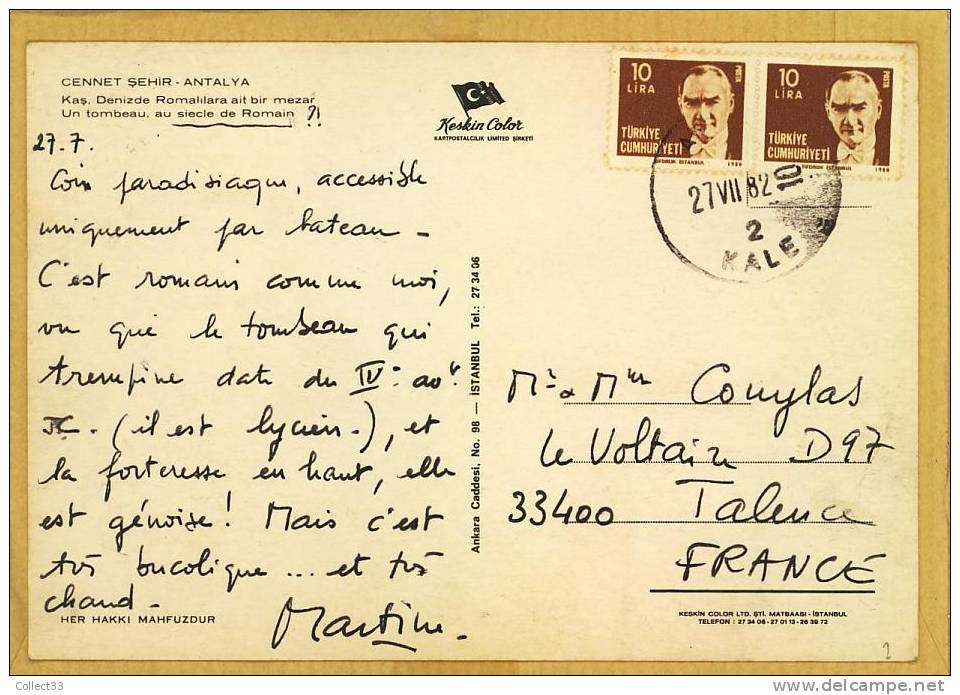 CENNET ŞEHİR - ANTALYA
Kaş, Denizde Romalılara ait bir mezar
Un tombeau, au siecle de Romain ?!
27.7.
Coin paradisiaque, accessible
uniquement par bateau -
C'est romain comme moi,
vu que le tombeau qui
trempine date du IVe av.
JC. (il est lycien.), et
la forteresse en haut, elle
est génoise! Mais c'est
très bucolique ... et très
chaud -
Martine.
HER HAKKI MAHFUZDUR
Keskin Color
KARTPOSTALCILIK LİMİTED ŞİRKETİ
Ankara Caddesi, No. 98 — İSTANBUL Tel.: 27 34 06
10
LİRA
POSTA
TÜRKİYE
CUMHURİYETİ
10
LİRA
POSTA
TÜRKİYE
CUMHURİYETİ
27 VII 82 10
2
KALE
Mr & Mme Comylas
Le Voltaire D97
33400 Talence
FRANCE
KESKİN COLOR LTD. ŞTİ. MATBAASI - İSTANBUL
TELEFON : 27 34 06 - 27 01 13 - 26 39 72
2
Collect33
www.delcampe.net